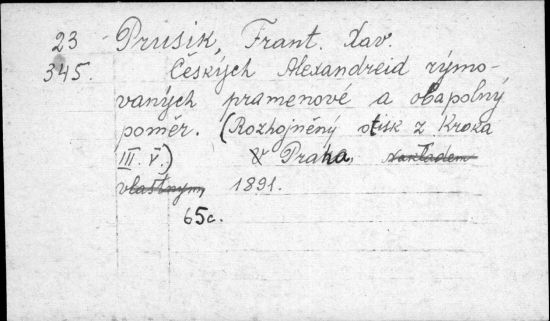 23 Prusík, Frant. Xav.
345. Českých Alexandreid rýmo-
vaných pramenové a obapolný
poměr. (Rozhojněný otisk z Kroka
III. V.) V Praha, nákladem
vlastným, 1891.
65c.